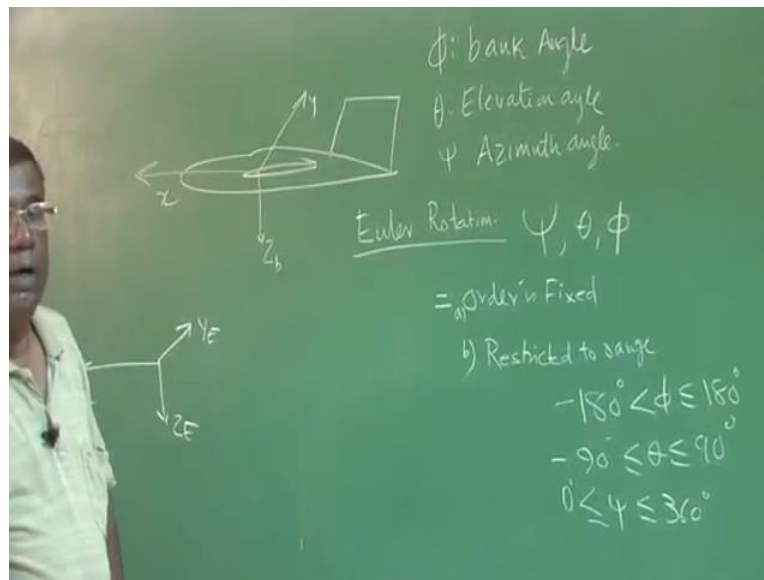 ϕ: bank Angle
θ. Elevation angle
ψ Azimuth angle.
y
x
Z_b
Euler Rotation. Ψ, θ, ϕ
= a) Order is Fixed
b) Restricted to range
-180° < ϕ ≤ 180°
-90° ≤ θ ≤ 90°
0° ≤ ψ ≤ 360°
Y_E
Z_E